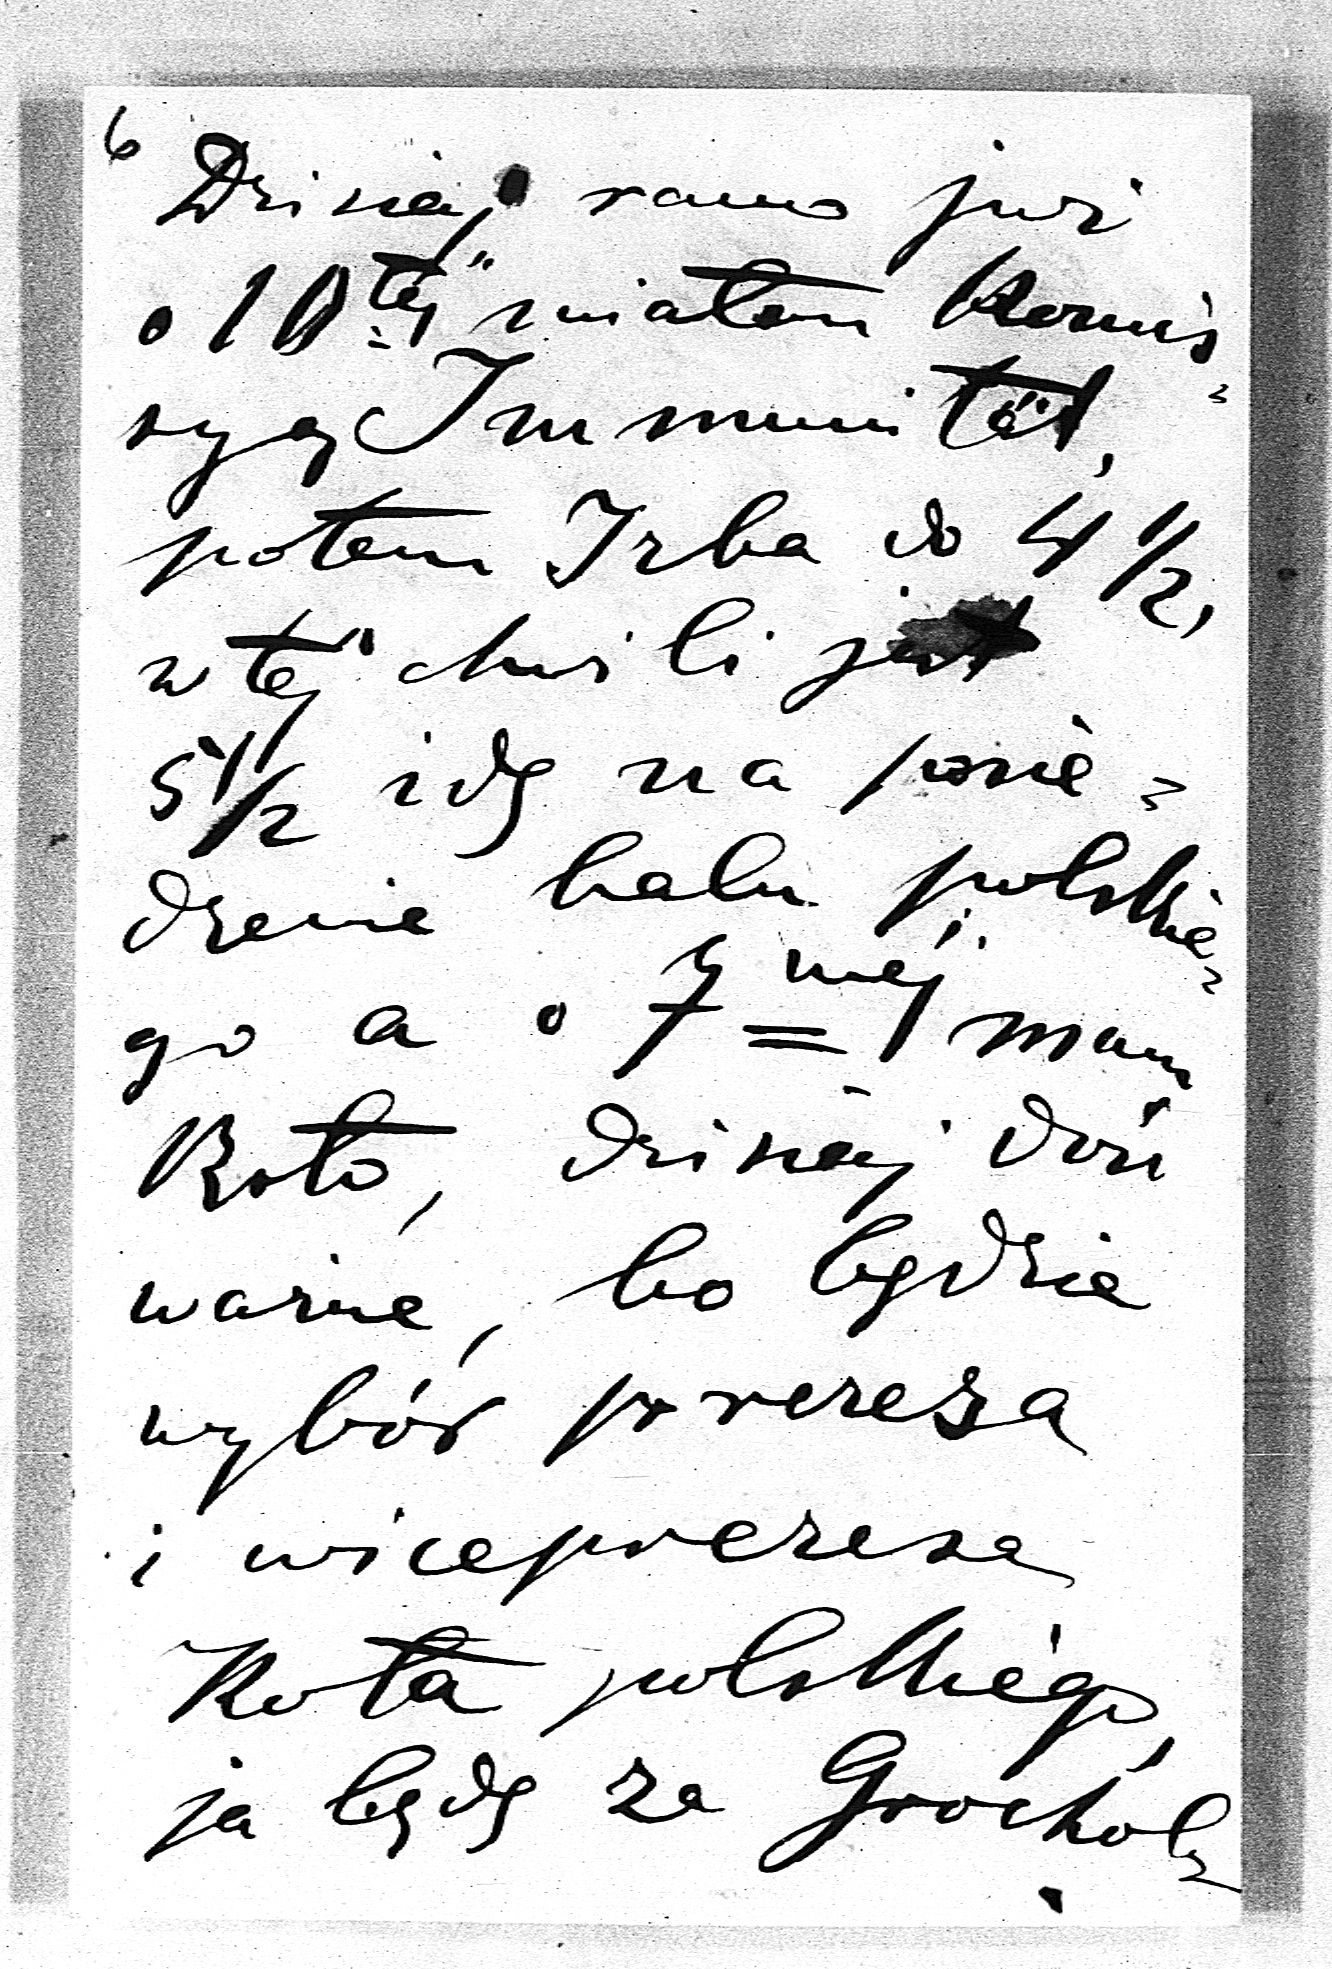 6
Dzisiaj rano już
o 10tej miałem Komis=
syę Immunität,
potem Izba do 4 1/2,
w tej chwili jest
5 1/2 idę na posie=
dzenie balu polskie=
go a o 7mej mam
Koło, dzisiaj dość
ważne, bo będzie
wybór prezesa
i wiceprezesa
Koła polskiego,
ja będę za